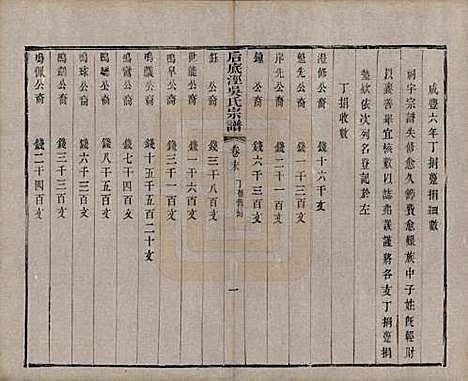 咸豐六年丁捐躉捐細數
祠宇宗譜失修愈久篩費愈鉅族中子姓旣輕財
以義善舉宜敏勖以志美謹將各支丁捐躉捐
欵依次列名登記於左
丁捐收數
澄修公裔 錢十六千文
魁先公裔 錢一千三百文
岸先公裔 錢二十一千文
鐘公裔 錢六千三百文
鏈公裔 錢三千八百文
世能公裔 錢一千六百文
鳴皐公裔 錢一千二百文
鳴鳳公裔 錢十五千五百二十文
鳴鸞公裔 錢七千五百文
鳴璁公裔 錢八千五百文
鳴球公裔 錢六千三百文
鳴鏘公裔 錢三千三百文
鳴佩公裔 錢二千四百文
后底涇吳氏宗譜 卷末 丁躉捐細 一